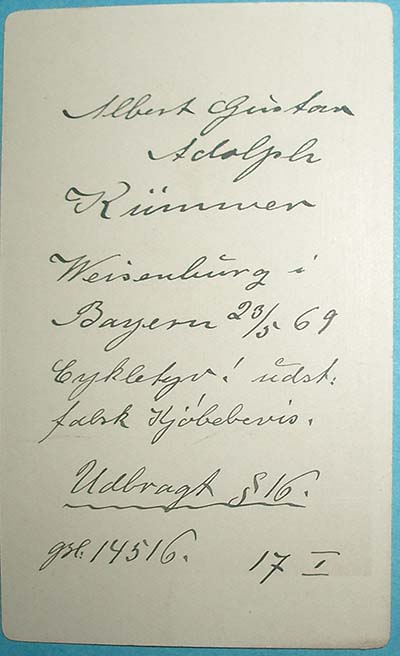 Albert Gustav
Adolph
Kümmer
Weisenburg i
Bayern 23/5 69
Cykletyv! udst:
falsk Kjöbebevis.
Udbragt § 16.
gsl: 14516. 17 I